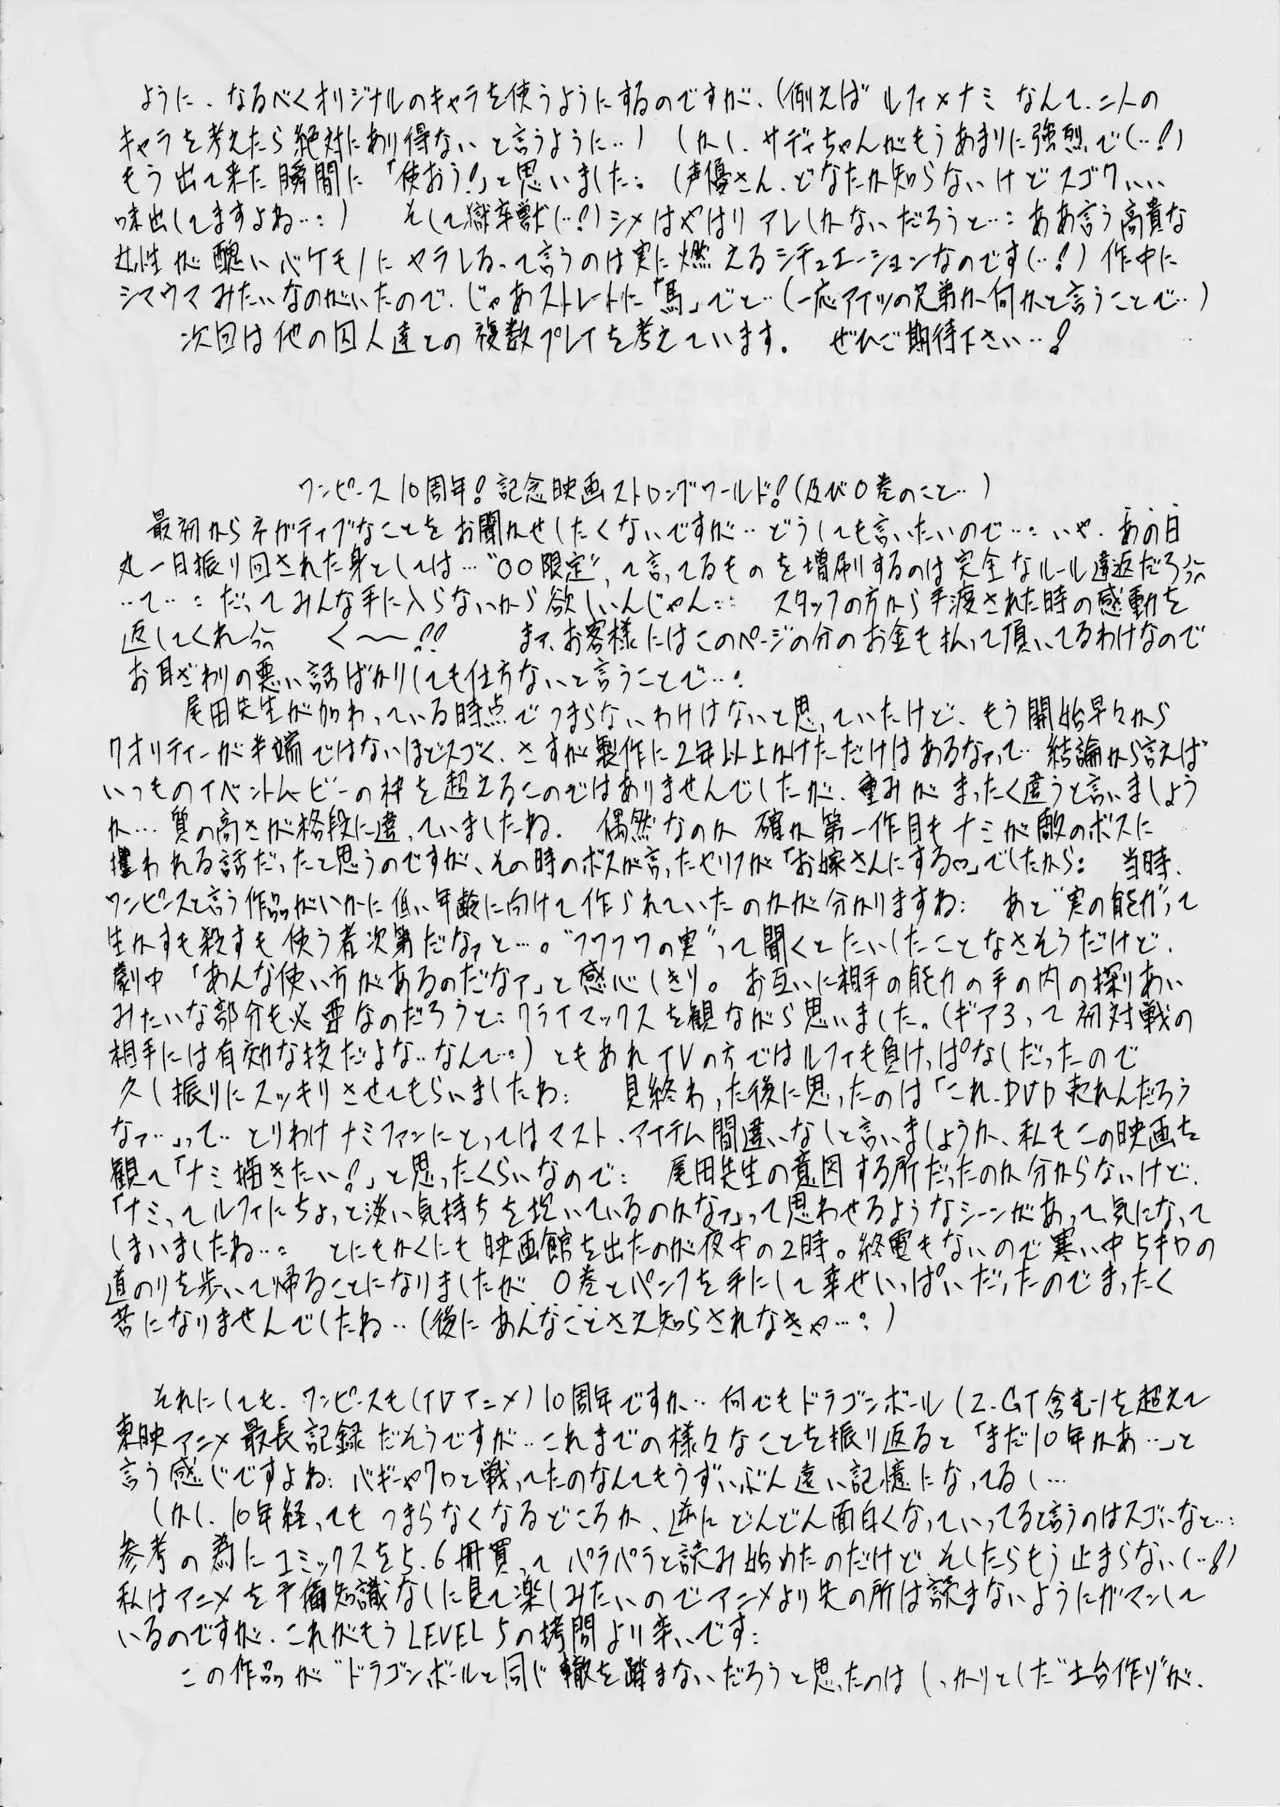 ように、なるべくオリジナルのキャラを使うようにするのですが、(例えば ルフィ×ナミ なんて、二人の
キャラを考えたら絶対にあり得ない と言うように…) しかし、サディちゃんがもうあまりに強烈で(…!)
もう出て来た瞬間に「使おう!」と思いました。(声優さん、どなたか知らないけどスゴクいい
味出してますよね…) そして獄卒獣(…!)シメはやはりアレしかないだろうと… ああ言う高貴な
女性が醜いバケモノにヤラレるって言うのは実に燃えるシチュエーションなのです(…!) 作中に
シマウマみたいなのがいたので、じゃあストレートに「馬」でと…(一応アイツの兄弟か何かと言うことで…)
次回は他の囚人達との複数プレイを考えています。 ぜひご期待下さい…!
ワンピース10周年!記念映画ストロングワールド!(及び0巻のこと…)
最初からネガティブなことをお聞かせしたくないですが… どうしても言いたいので… いや、あの日
丸一日振り回された身としては…"○○限定"、って言ってるものを増刷するのは完全なルール違反だろ
…って… だってみんな手に入らないから欲しいんじゃん… スタッフの方から手渡された時の感動を
返してくれ く〜〜!! まァ、お客様にはこのページの分のお金も払って頂いてるわけなので
お耳ざわりの悪い話ばかりしても仕方ないと言うことで…
尾田先生が加わっている時点でつまらないわけはないと思っていたけど、もう開始早々から
クオリティーが半端ではないほどスゴく、さすが製作に2年以上かけただけはあるなァって… 結論から言えば
いつものイベントムービーの枠を超えるものではありませんでしたが、重みがまったく違うと言いましょう
か… 質の高さが格段に違っていましたね、 偶然なのか 確か第一作目もナミが敵のボスに
攫われる話だったと思うのですが、その時のボスが言ったセリフが「お嫁さんにする♡」でしたから 当時、
ワンピースと言う作品がいかに低い年齢に向けて作られていたのかが分かりますね あと"実の能力"って
生かすも殺すも使う者次第だなァと…。"フワフワの実"って聞くとたいしたことなさそうだけど、
劇中「あんな使い方があるのだなァ」と感心しきり。お互いに相手の能力の手の内の探りあい
みたいな部分も必要なのだろうと クライマックスを観ながら思いました。(ギア3って初対戦の
相手には有効な技だよな…なんて) ともあれTVの方ではルフィも負けっぱなしだったので
久し振りにスッキリさせてもらいましたね 見終わった後に思ったのは「これ、DVD売れんだろう
なァ…」って… とりわけナミファンにとってはマスト、アイテム間違いなしと言いましょうか、私もこの映画を
観て「ナミ描きたい!」と思ったくらいなので 尾田先生の意図する所だったのか分からないけど、
「ナミってルフィにちょっと淡い気持ちを抱いているのかなァ」って思わせるようなシーンがあって、気になって
しまいましたね… とにもかくにも映画館を出たのが夜中の2時。終電もないので寒い中5キロの
道のりを歩いて帰ることになりましたが 0巻とパンフを手にして幸せいっぱいだったのでまったく
苦になりませんでしたね…(後にあんなことさえ知らされなきゃ…)
それにしても、ワンピースも(TVアニメ)10周年ですか… 何でもドラゴンボール(Z、GT含む)を超えて
東映アニメ最長記録だそうですが…これまでの様々なことを振り返ると「まだ10年かあ…」と
言う感じですよね バギーやクロと戦ってたのなんてもうずいぶん遠い記憶になってるし…
しかし、10年経ってもつまらなくなるどころか、逆にどんどん面白くなっていってると言うのはスゴいなと…
参考の為にコミックスを5、6冊買ってパラパラと読み始めたのだけど そしたらもう止まらない(…!)
私はアニメを予備知識なしに見て楽しみたいのでアニメより先の所は読まないようにガマンして
いるのですが、これがもうLEVEL5の拷問より辛いです
この作品が"ドラゴンボールと同じ轍を踏まないだろうと思ったのはしっかりとした"土台作り"が、